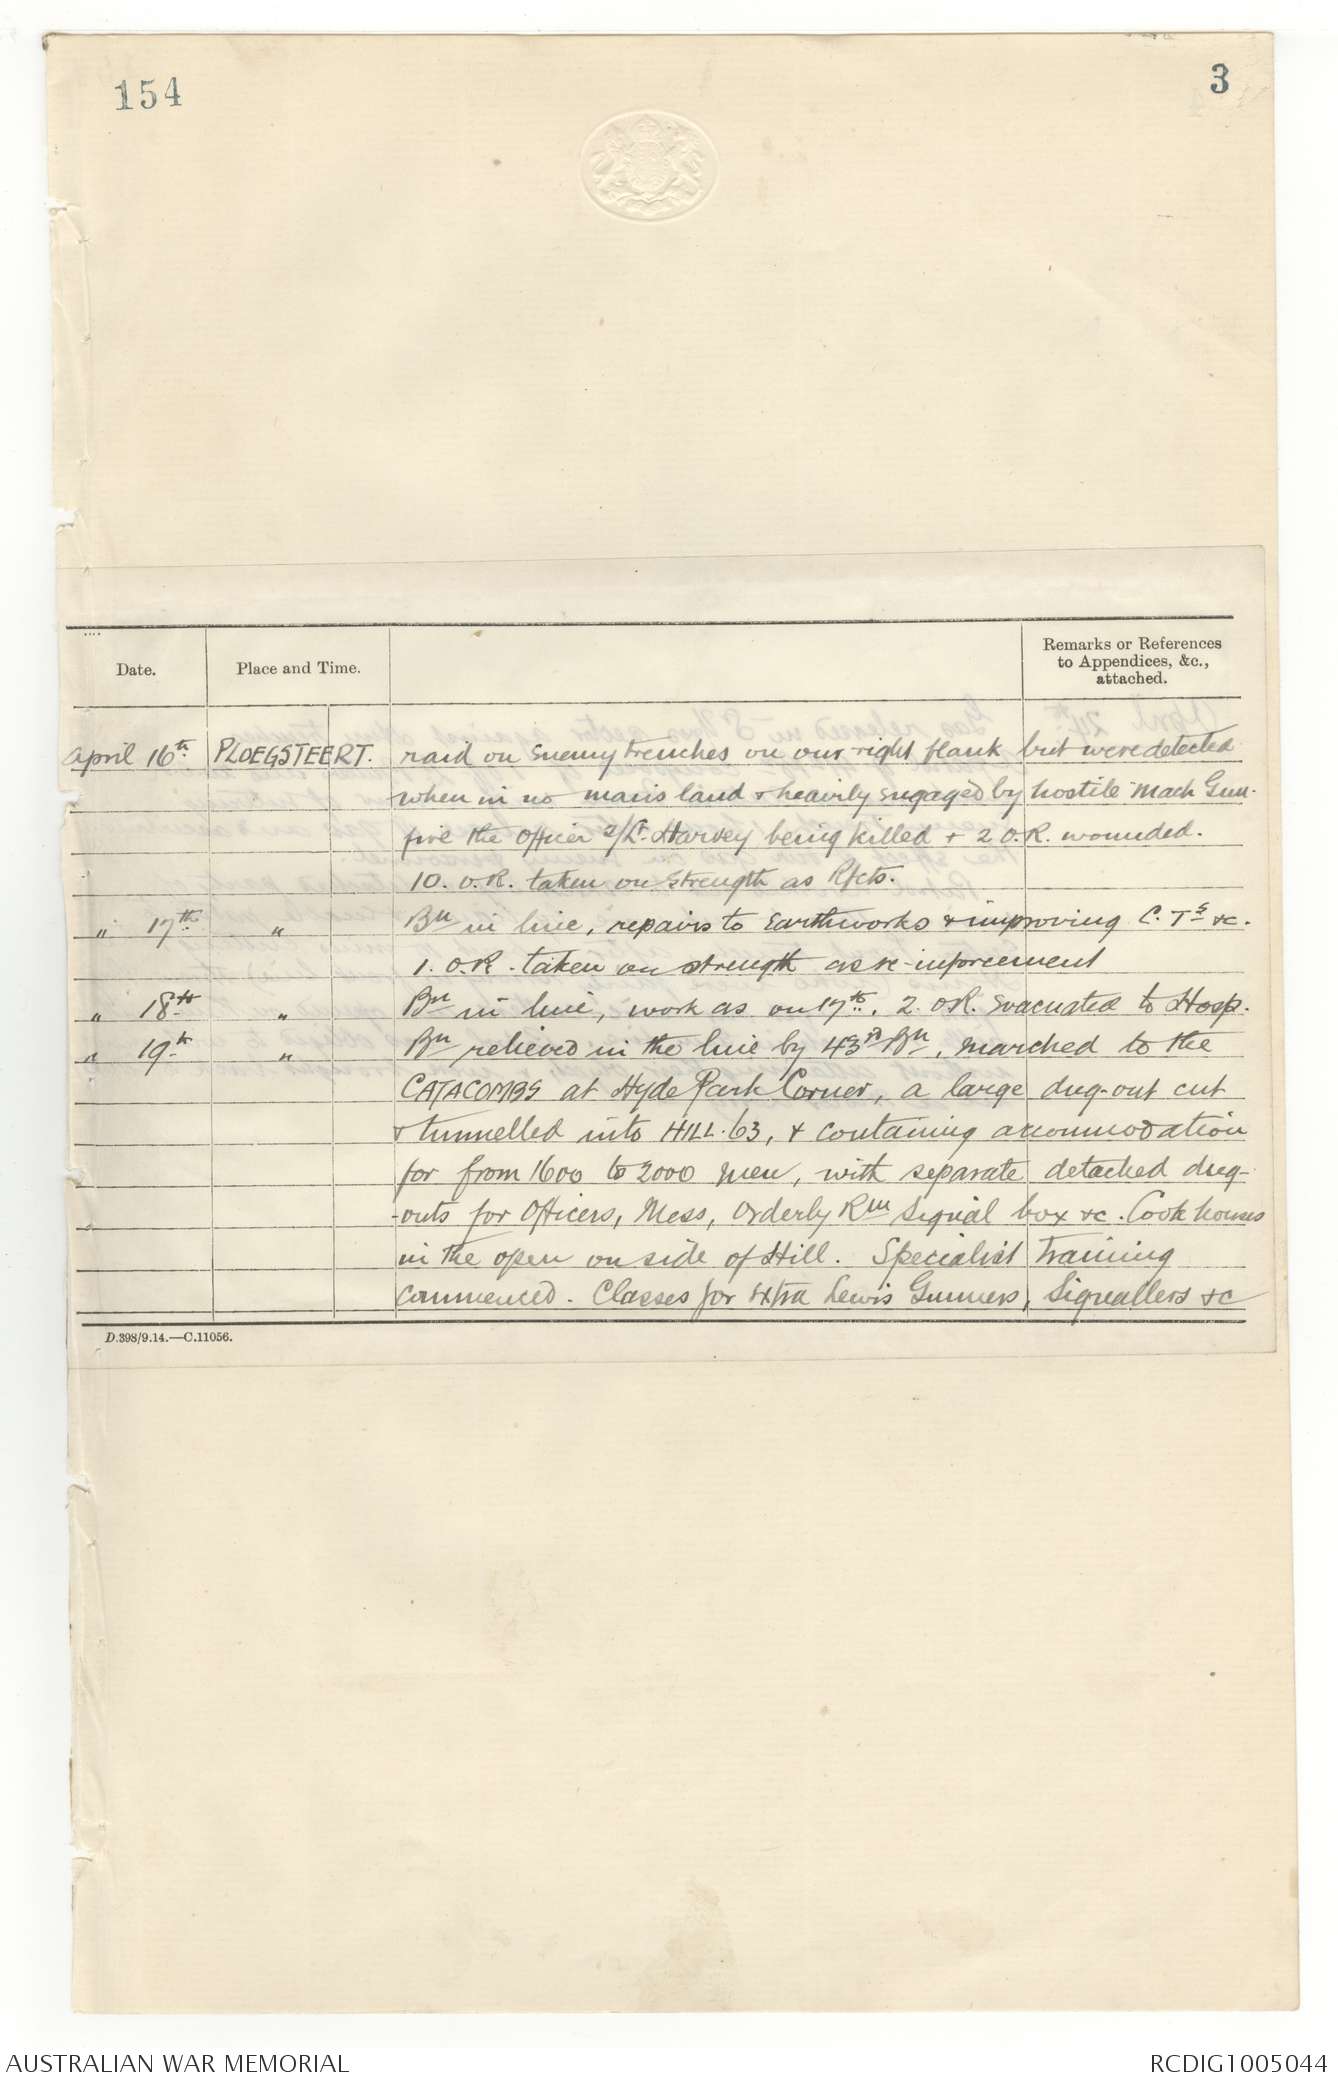 154
3
Date.
Place and Time.
Remarks or References
to Appendices, &c.,
attached.
April 16th PLOEGSTEERT. raid on Enemy trenches on our right flank but were detected
when in no mans land & heavily engaged by hostile Mach Gun-
fire the Officer 2/Lt. Harvey being killed & 2 O.R. wounded.
10. O.R. taken on strength as Rfcts.
" 17th " Bn in line, repairs to Earthworks & improving C. Ts &c.
1. O.R. taken on strength as re-inforcement
" 18th " Bn in line, work as on 17th. 2. O.R. Evacuated to Hosp.
" 19th " Bn relieved in the line by 43rd Bn, marched to the
CATACOMBS at Hyde Park Corner, a large dug-out cut
& tunnelled into HILL.63, & containing accommodation
for from 1600 to 2000 men, with separate detached dug-
-outs for Officers, Mess, Orderly Rm Signal box &c. Cook houses
in the open on side of Hill. Specialist Training
commenced. Classes for extra Lewis Gunners, Signallers &c
D.398/9.14.—C.11056.
AUSTRALIAN WAR MEMORIAL
RCDIG1005044